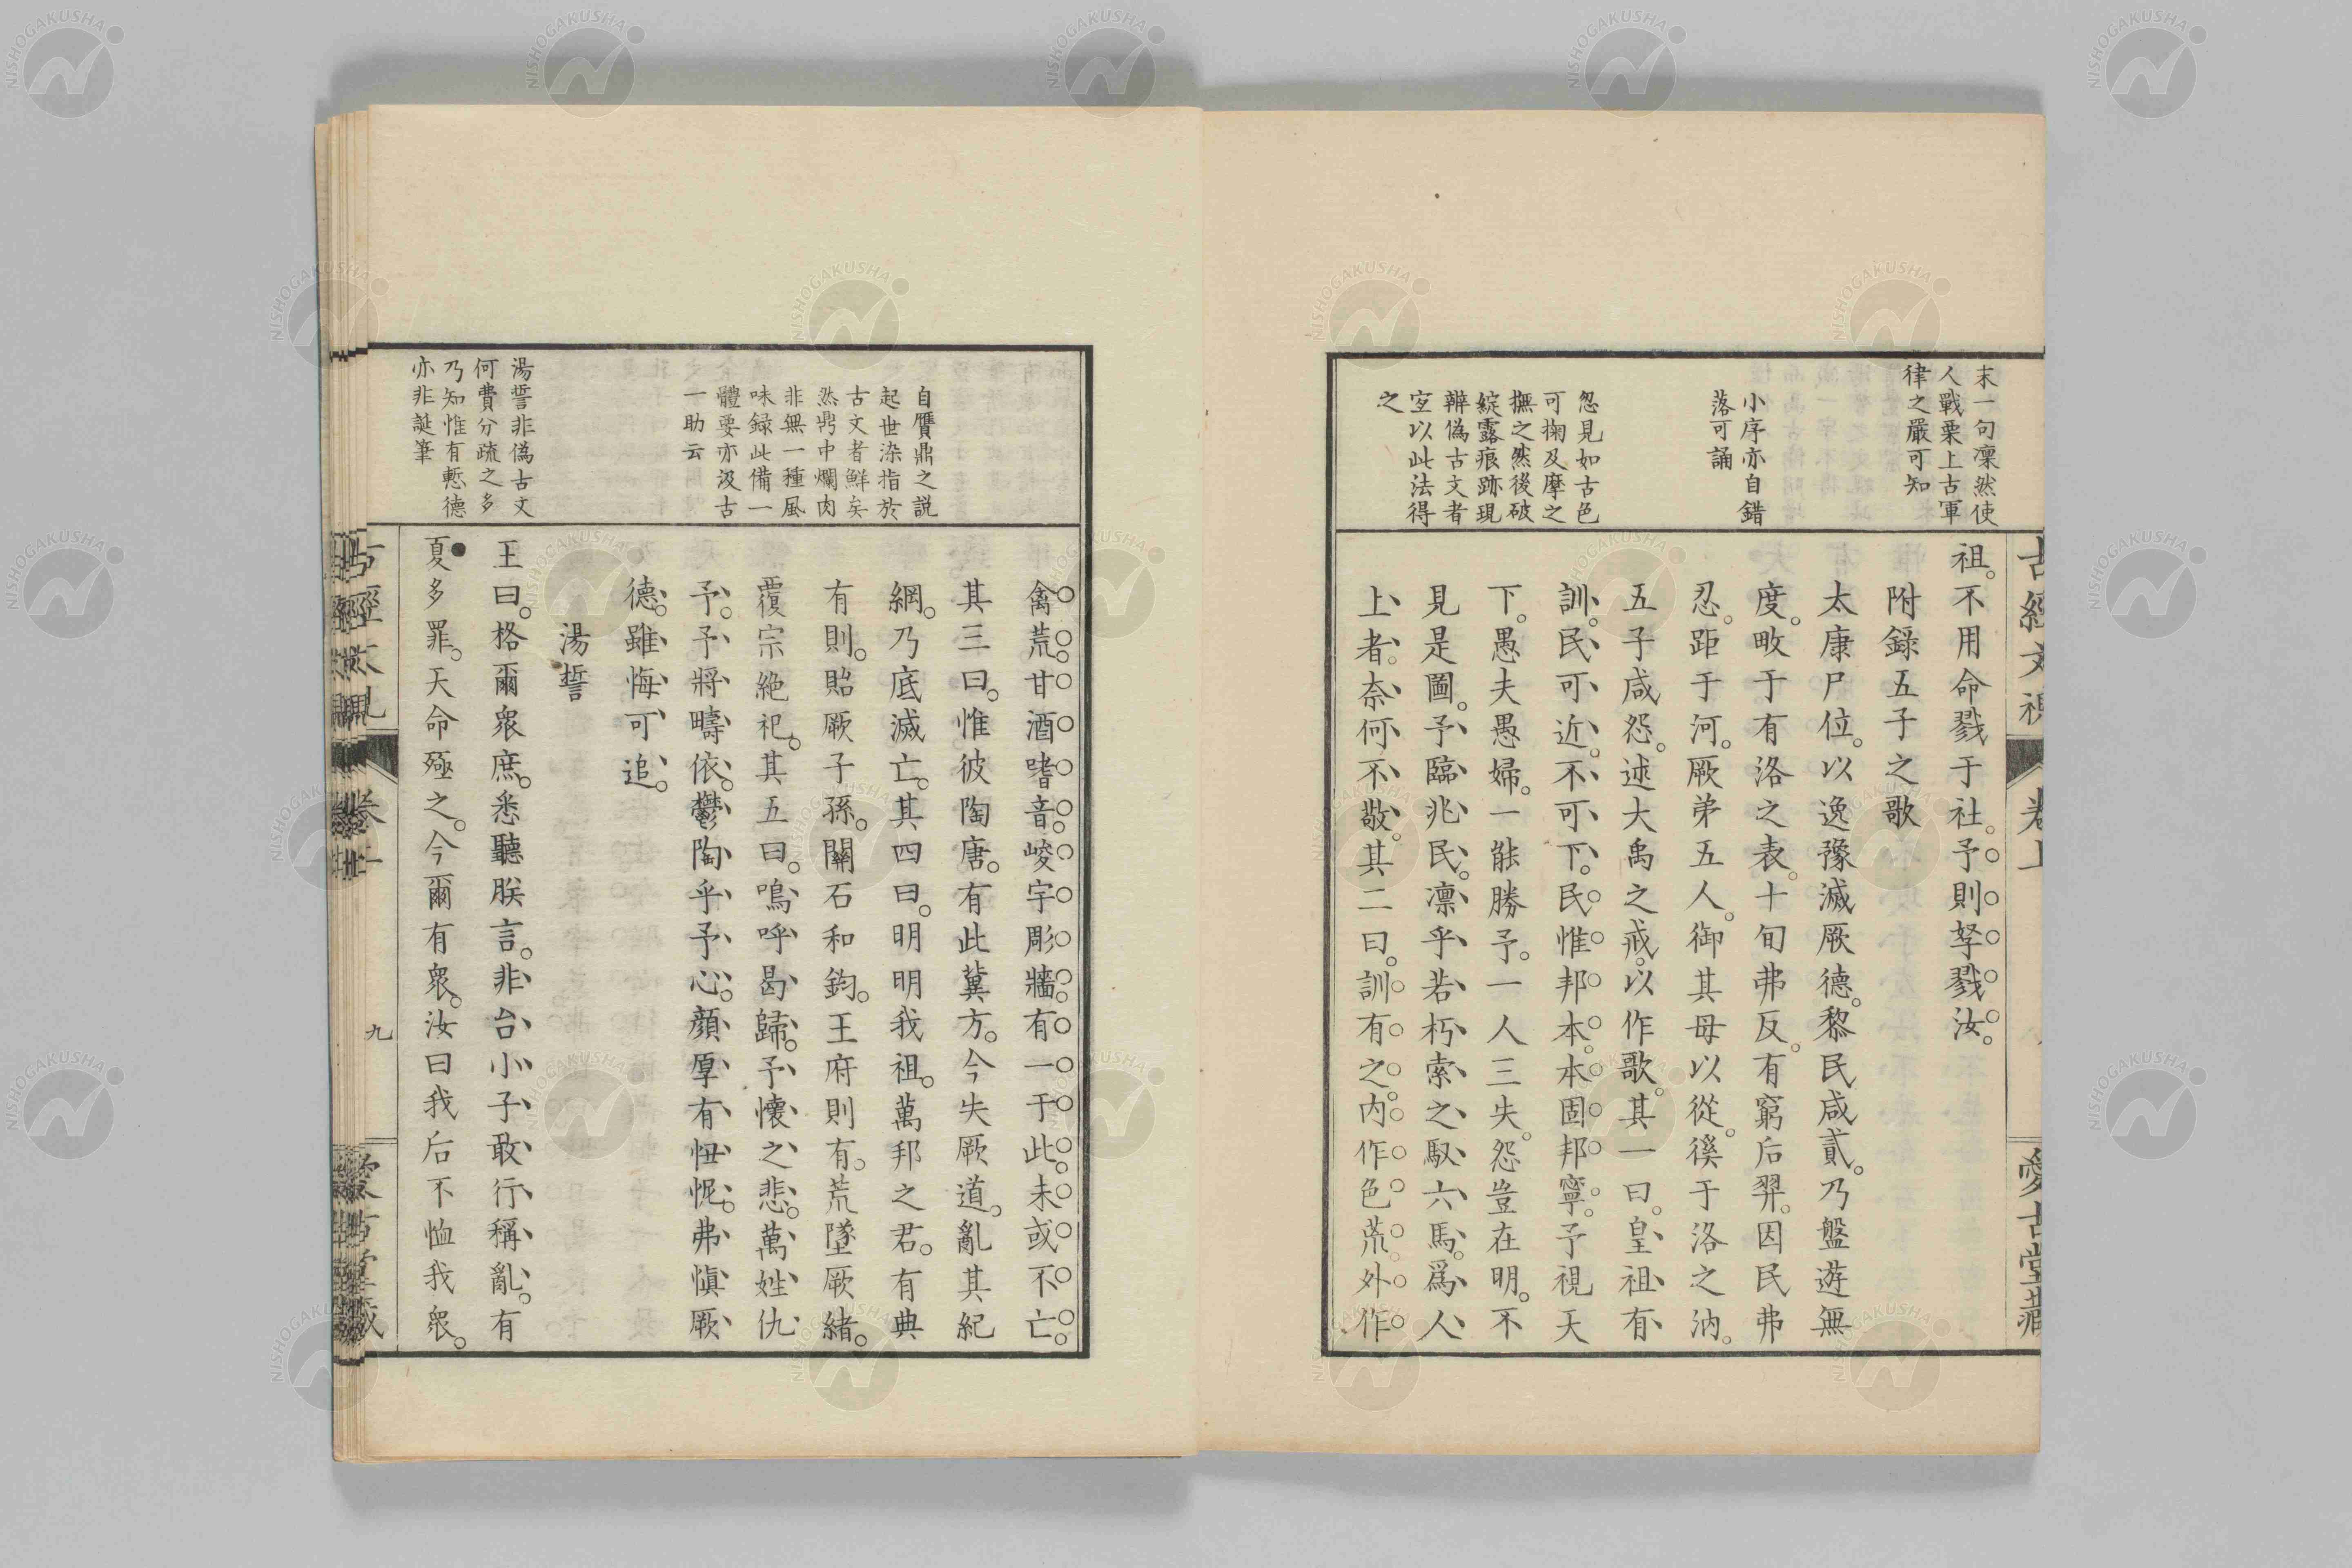 末一句凜然使
人戰栗上古軍
律之嚴可知
小序亦自錯
落可誦
忽見如古色
可掬及摩之
撫之然後破
綻露痕跡現
辨偽古文者
宜以此法得
之
祖。不用命戮于社。予則孥戮汝。
附錄五子之歌
太康尸位。以逸豫滅厥德。黎民咸貳。乃盤遊無
度。畋于有洛之表。十旬弗反。有窮后羿。因民弗
忍。距于河。厥弟五人。御其母以從。徯于洛之汭。
五子咸怨。述大禹之戒。以作歌。其一曰。皇祖有
訓。民可近。不可下。民惟邦本。本固邦寧。予視天
下。愚夫愚婦。一能勝予。一人三失。怨豈在明。不
見是圖。予臨兆民。凛乎若朽索之馭六馬。爲人
上者。奈何不敬。其二曰。訓有之。內作色荒。外作
古經文視
卷上
愛古堂藏
自贋鼎之説
起世染指於
古文者鮮矣
然鼎中爛肉
非無一種風
味録此備一
體要亦汲古
一助云
湯誓非偽古文
何費分疏之多
乃知惟有慙德
亦非誕筆
禽荒。甘酒嗜音。峻宇彫牆。有一于此。未或不亡。
其三曰。惟彼陶唐。有此冀方。今失厥道。亂其紀
綱。乃底滅亡。其四曰。明明我祖。萬邦之君。有典
有則。貽厥子孫。關石和鈞。王府則有。荒墜厥緒。
覆宗絶祀。其五曰。嗚呼曷歸。予懷之悲。萬姓仇
予。予將疇依。鬱陶乎予心。顔厚有忸怩。弗慎厥
德。雖悔可追。
湯誓
王曰。格爾衆庶。悉聽朕言。非台小子敢行稱亂。有
夏多罪。天命殛之。今爾有衆。汝曰我后不恤我衆。
九